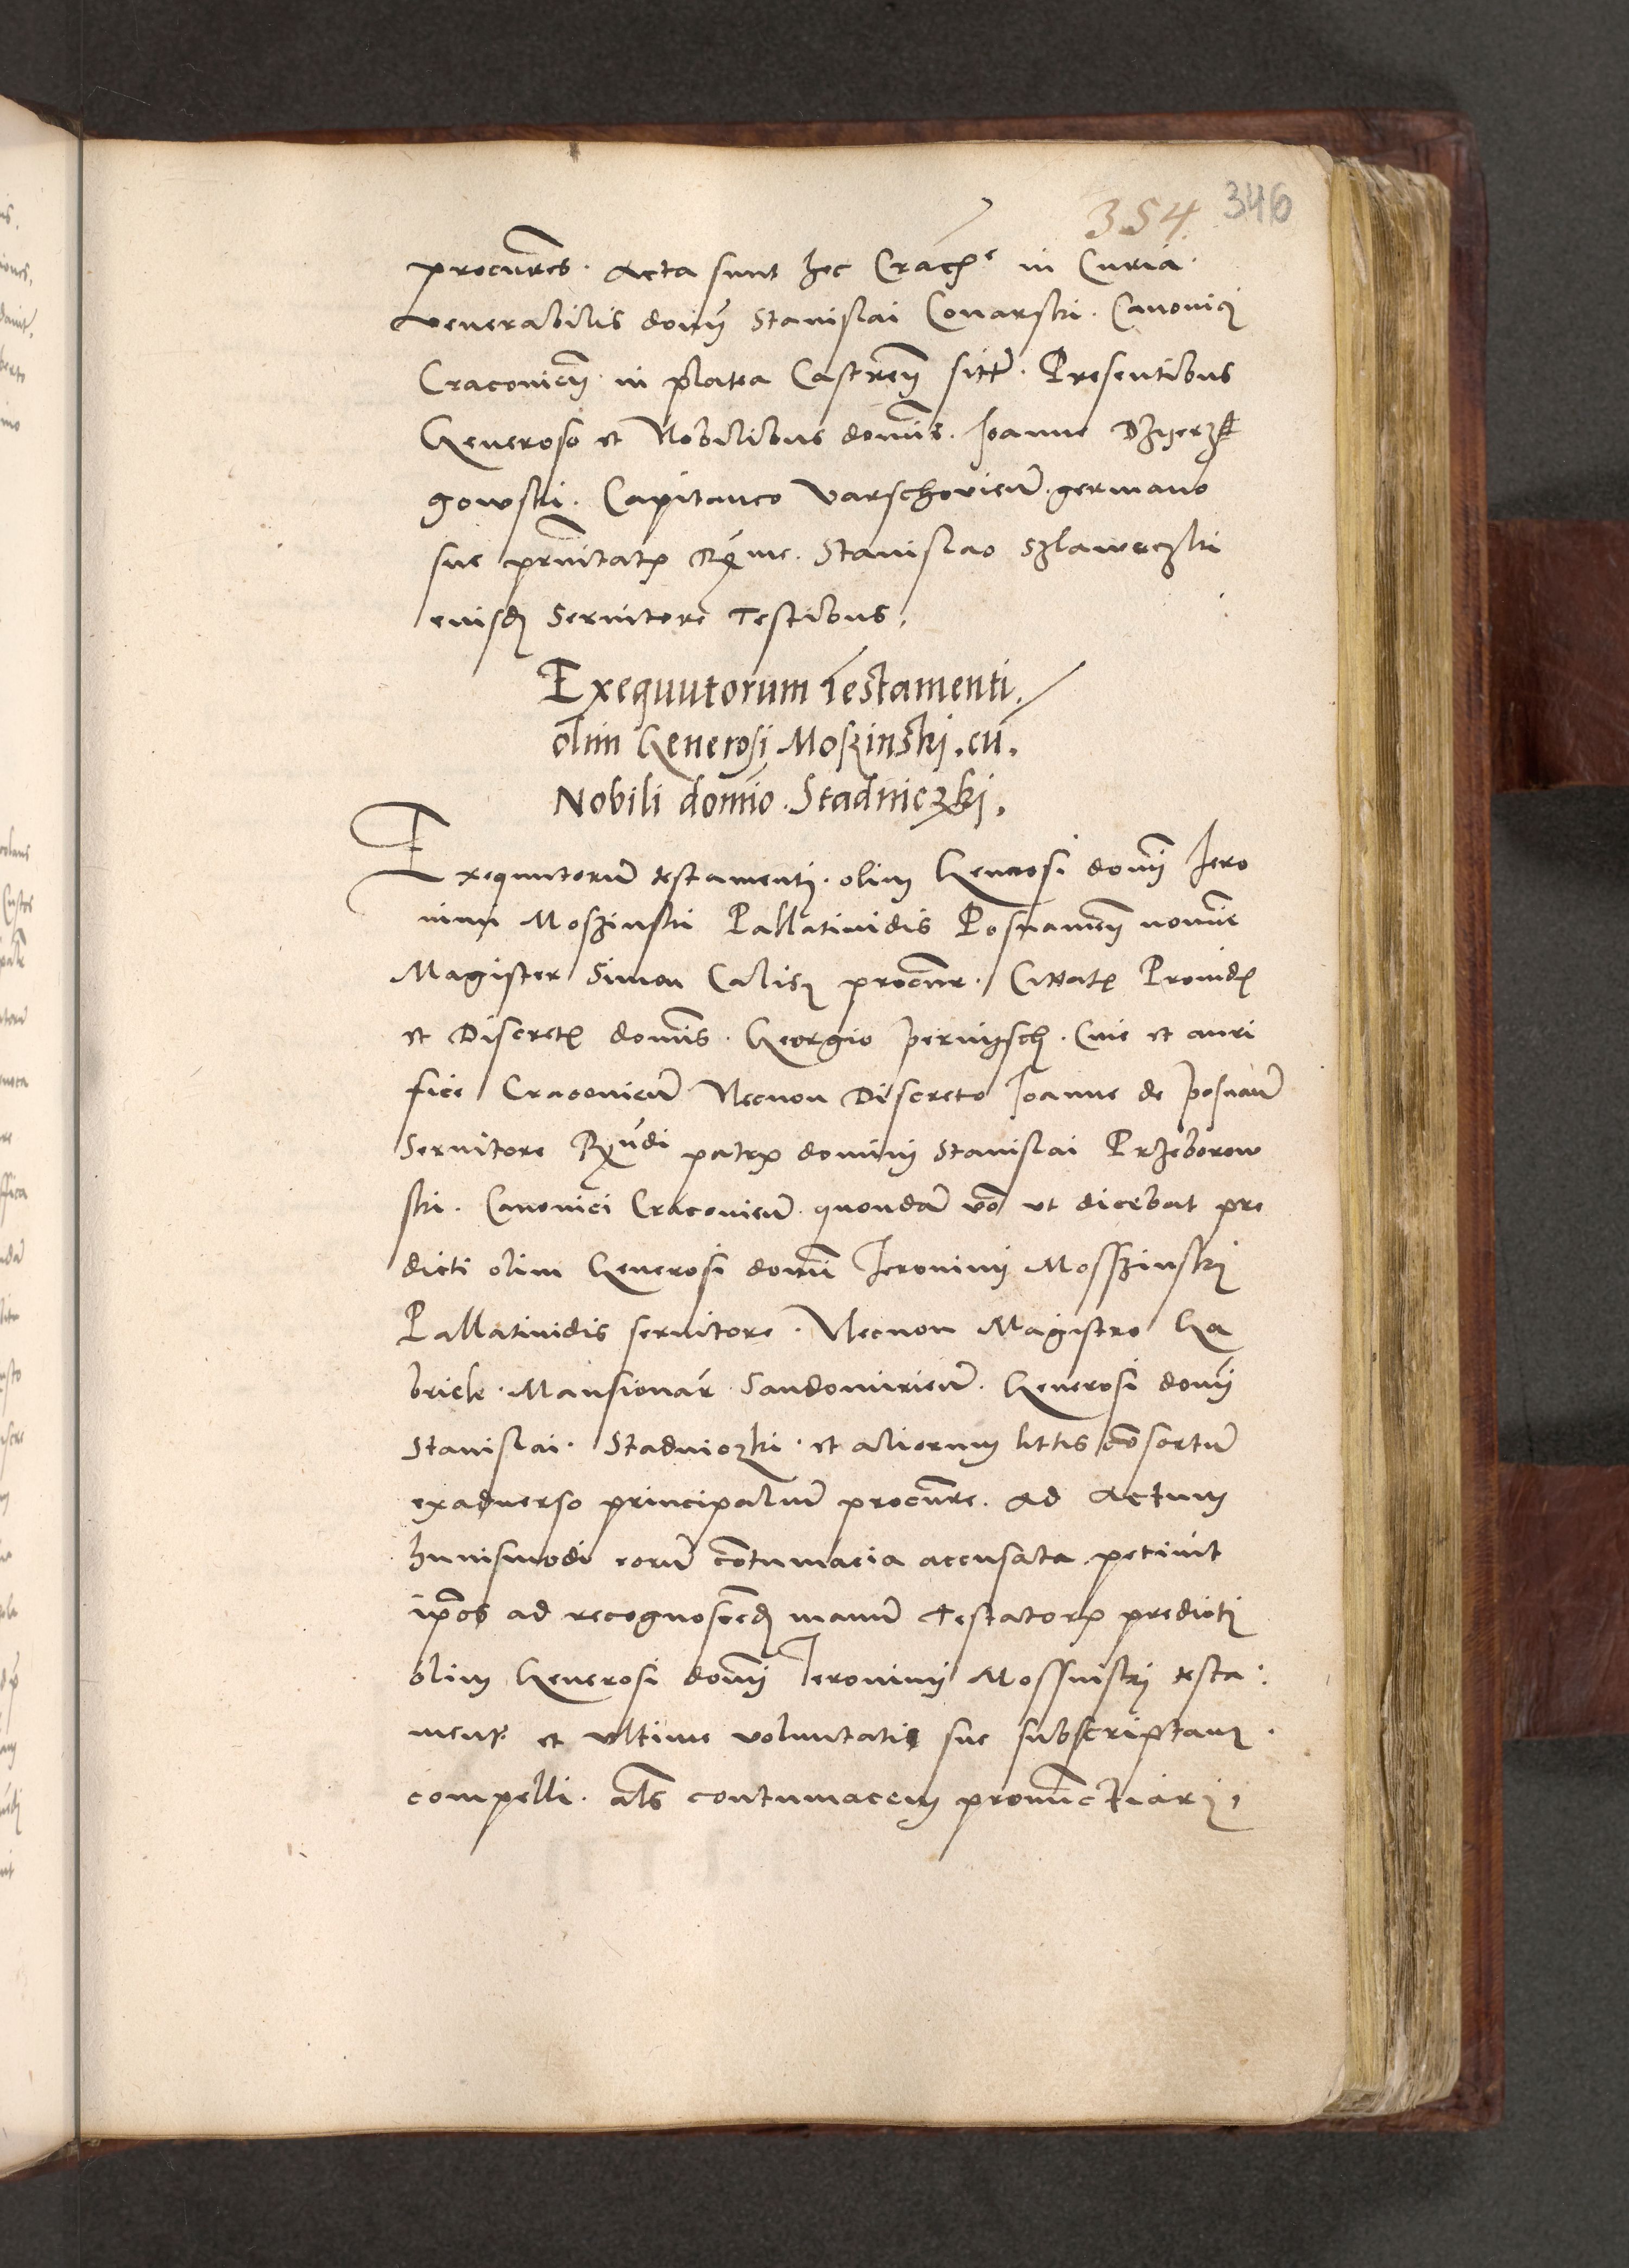 354. 346
procures. Acta sunt hec Crac. in Curia.
venerabilis domi Stanislai Conarski. Canonici
Craconien. in platea Castren. sit. Presentibus
Generoso et Nobilibus dominis. Joanne Dzyerz
gowski. Capitaneo Varschovien. germano
sue prnitatis Rme. Stanislao Szlaweczki
eiusd Servitore Testibus,
Exequutorum Testamenti.
olim Generosi Moszinski. cu.
Nobili domio. Stadniczki.
Exequutoru testamenti. olim Generosi domi Jero
nimi Moszinski Pallatinidis Posnanien nomine
Magister Simon Calisz procur. Citatis Providis
et Discretis domis. Georgio Pernusch. Cive et auri
fice Cracovien Necnon Discreto Joanne de Posnan
Servitore Rvndi patris domini Stanislai Przeborow
ski. Canonici Cracovien. quondam vo ut dicebat pre
dicti olim Generosi domi Jeronimi Mosszinski
Pallatinidis servitore. Necnon Magistro Ga
briele. Mansionar Sandomirien. Generosi domi
Stanislai. Stadniczki. et aliorum littis consortu
exadverso principaliu procure. Ad Actum
huiusmodi eoru contumacia accusata petivit
ipos ad recognoscend manum Testatoris predicti
olim Generosi domi Jeronimi Mossinski testa:
ment. et ultime voluntatis sue subscriptam.
compelli. als contumacem pronunctiari,